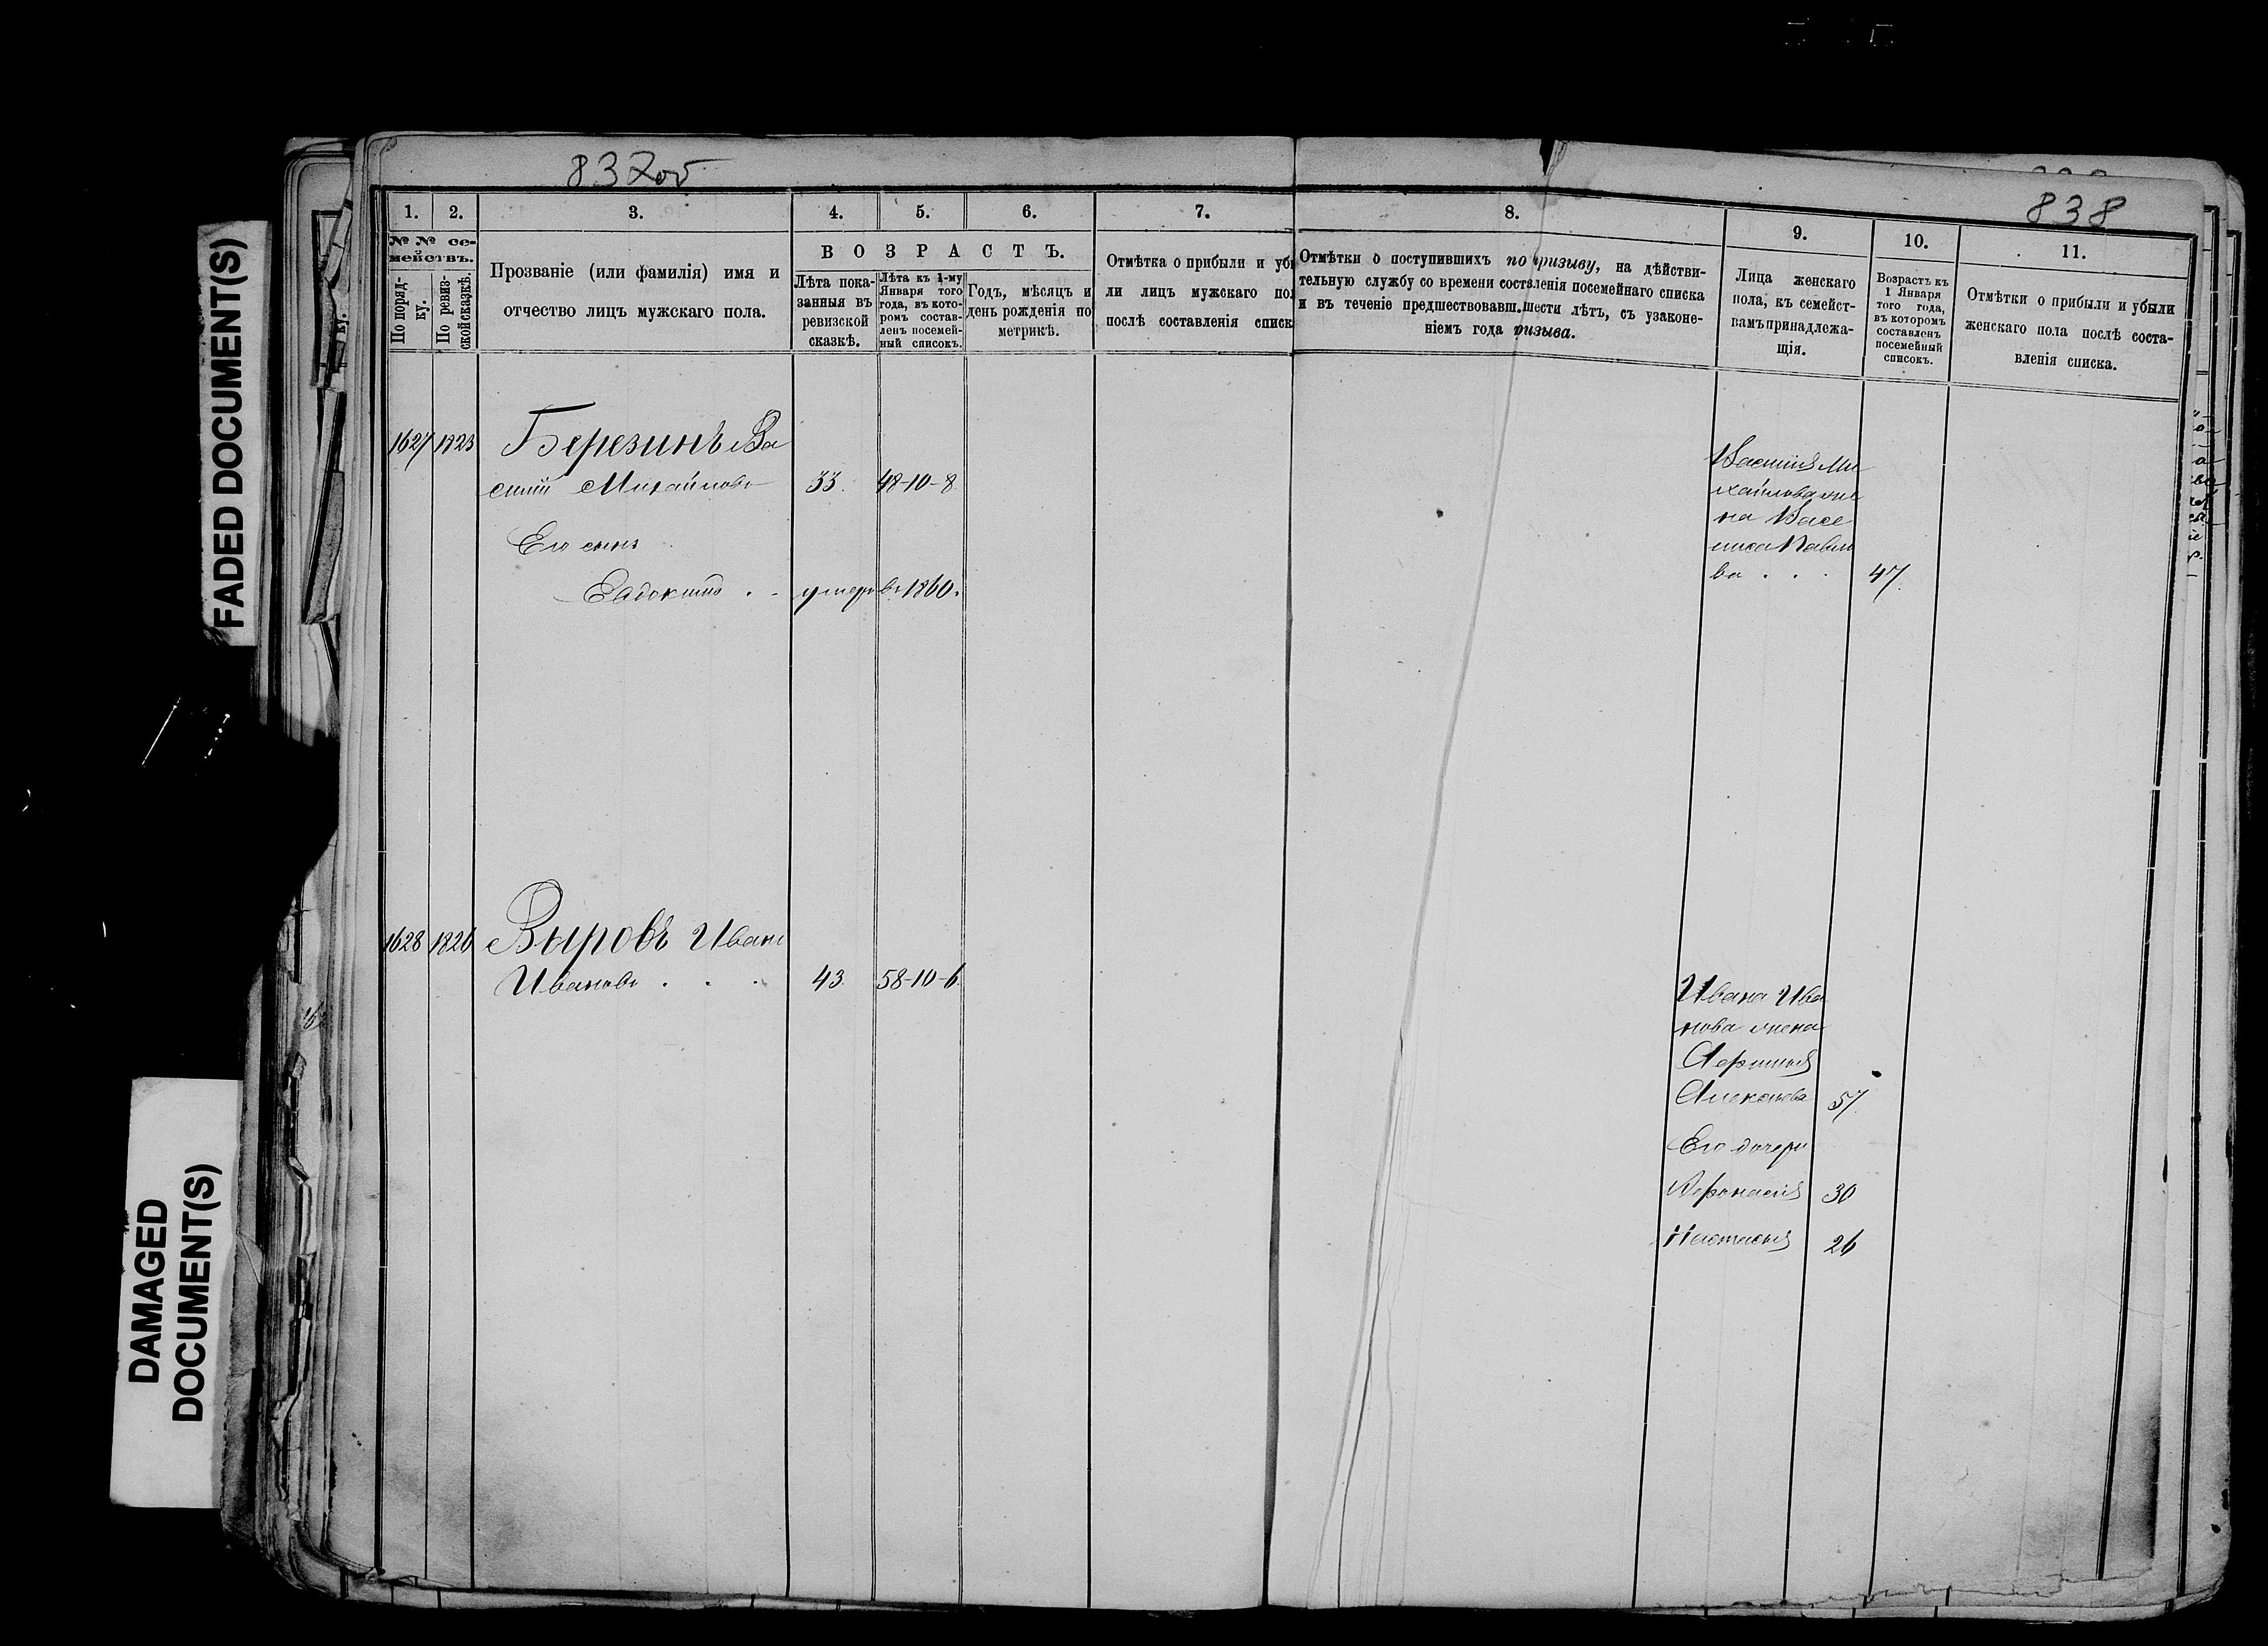 837об
838
FADED DOCUMENT(S)
DAMAGED
DOCUMENT(S)
1.
2.
3.
4.
5.
6.
7.
8.
9.
10.
11.
№ № се-
мействъ.
По поряд-
ку.
По ревиз-
ской сказкѣ.
Прозваніе (или фамилія) имя и
отчество лицъ мужскаго пола.
ВОЗРАСТЪ.
Лѣта пока-
занныя въ
ревизской
сказкѣ.
Лѣта къ 1-му
Января того
года, въ кото-
ромъ состав-
ленъ посемей-
ный списокъ.
Годъ, мѣсяцъ и
день рожденія по
метрикѣ.
Отмѣтка о прибыли и убы
ли лицъ мужскаго пол
послѣ составленія списк
Отмѣтки о поступившихъ по призыву, на дѣйстви-
тельную службу со времени составленія посемейнаго списка
и въ теченіе предшествовавш. шести лѣтъ, съ узаконе-
ніемъ года призыва.
Лица женскаго
пола, къ семейст-
вамъ принадлежа-
щія.
Возрастъ къ
1 Января
того года,
въ которомъ
составленъ
посемейный
списокъ.
Отмѣтки о прибыли и убыли
женскаго пола послѣ соста-
вленія списка.
1627 1823 Березинъ Ва
силій Михайловъ 33. 48-10-8
Его сынъ
Евдокимъ . . умеръ въ 1860.
Василія Ми
хайлова же
на Васи
лиса Павло
ва . . . 47.
1628 1826 Выровъ Иванъ
Ивановъ . . . 43. 58-10-6
Ивана Ива
нова жена
Афимья
57.
Его дочери
30
Настасья 26